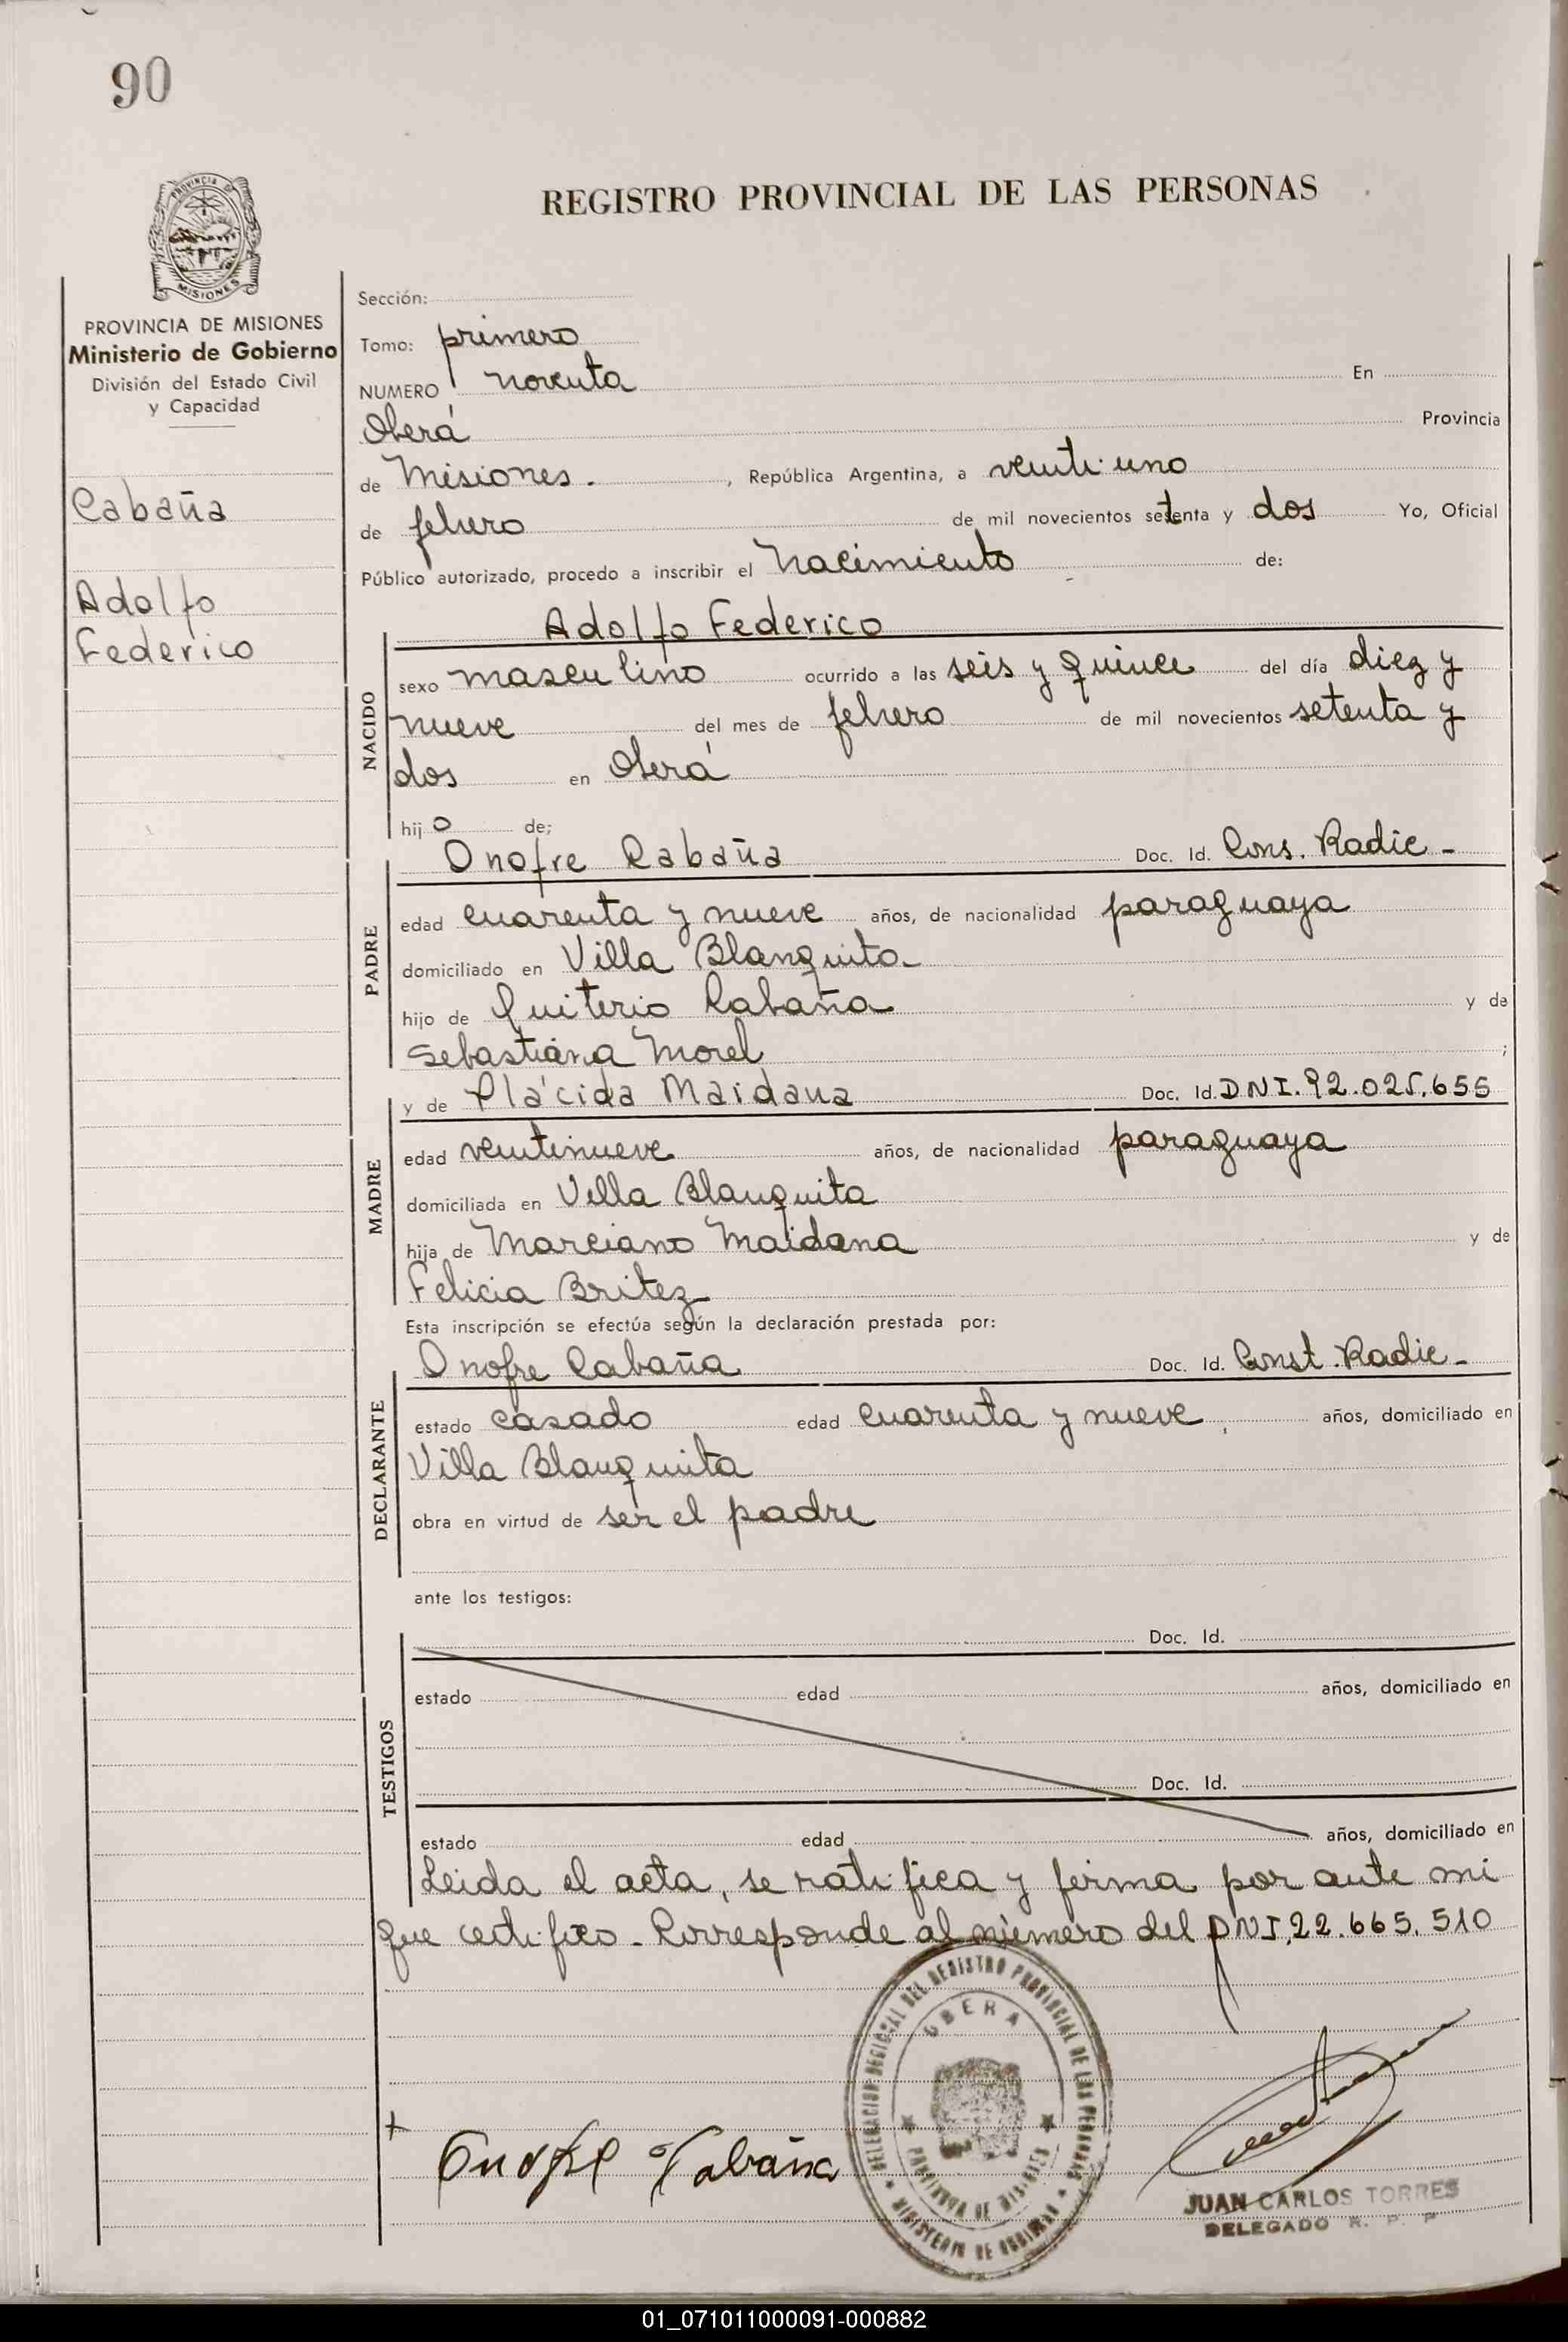 90
REGISTRO PROVINCIAL DE LAS PERSONAS
PROVINCIA DE MISIONES
Ministerio de Gobierno
División del Estado Civil
y Capacidad
Cabaña
Adolfo
Federico
Sección:
Tomo: primero
NUMERO noventa En
Oberá Provincia
de Misiones. , República Argentina, a veinti uno
de febrero de mil novecientos setenta y dos Yo, Oficial
Público autorizado, procedo a inscribir el Nacimiento de:
Adolfo Federico
NACIDO
sexo masculino ocurrido a las seis y quince del día diez y
nueve del mes de febrero de mil novecientos setenta y
dos en Oberá
hijo de;
Onofre Cabaña Doc. Id. Cons. Radic -
PADRE
edad cuarenta y nueve años, de nacionalidad paraguaya
domiciliado en Villa Blanquita
hijo de Quiterio Cabaña y de
Sebastiana Morel ;
y de Plácida Maidana Doc. Id. DNI. 92.025.655
MADRE
edad veintinueve años, de nacionalidad paraguaya
domiciliada en Villa Blanquita
hija de Marciano Maidana y de
Felicia Britez
Esta inscripción se efectúa según la declaración prestada por:
Onofre Cabaña Doc. Id. Const. Radic -
DECLARANTE
estado casado edad cuarenta y nueve, años, domiciliado en
Villa Blanquita
obra en virtud de ser el padre
ante los testigos:
Doc. Id.
TESTIGOS
estado edad años, domiciliado en
Doc. Id.
estado edad años, domiciliado en
Leida el acta, se ratifica y firma por ante mi
que certifico - Corresponde al número del DNI, 22.665.510
DELEGACION REGIONAL DEL REGISTRO PROVINCIAL DE LAS PERSONAS
OBERA
PROVINCIA DE MISIONES
MINISTERIO DE GOBIERNO
Onofre Cabaña
JUAN CARLOS TORRES
DELEGADO R. P. P
01_071011000091-000882